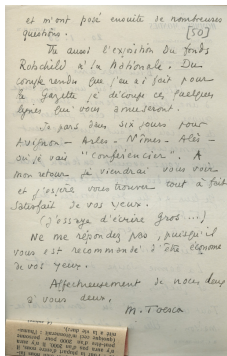 et m'ont posé ensuite de nombreuses
questions. [50]
Vu aussi l'exposition du fonds
Rotschild à la Nationale. Du
compte rendu que j'en ai fait pour
la Gazette je découpe ces quelques
lignes qui vous amuseront.
Je pars dans six jours pour
Avignon - Arles - Nîmes - Alès -
où je vais "conférencier". A
mon retour je viendrai vous voir
et j'espère vous trouver tout à fait
satisfait de vos yeux.
(J'essaye d'écrire gros...)
Ne me répondez pas, puisqu'il
vous est recommandé d'être économe
de vos yeux.
Affectueusement de nous deux
à vous deux.
M. Toesca